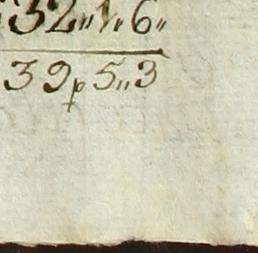 32„1„6„
39p5„3